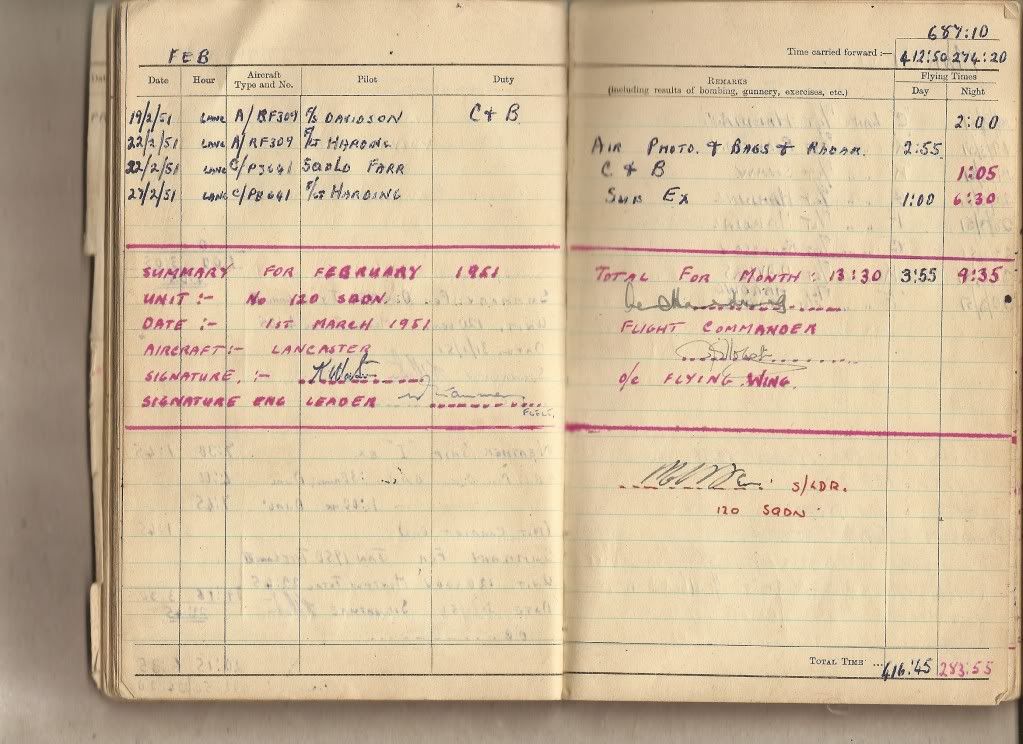 687:10
FEB
Time carried forward :— 412:50 274:20
Date Hour Aircraft Type and No. Pilot Duty REMARKS (including results of bombing, gunnery, exercises, etc.) Flying Times Day Night
19/2/51 LANC A/RF309 F/S DAVIDSON C & B 2:00
22/2/51 LANC A/RF309 F/LT HARDING AIR PHOTO. & BAGS & RADAR. 2:55
22/2/51 LANC SQDLD FARR C & B 1:05
27/2/51 LANC F/LT HARDING SUB EX 1:00 6:30
SUMMARY FOR FEBRUARY 1951 TOTAL FOR MONTH: 13:30 3:55 9:35
UNIT :- No 120 SQDN
DATE :- 1ST MARCH 1951 FLIGHT COMMANDER
AIRCRAFT:- LANCASTER
SIGNATURE. :- O/C FLYING WING.
SIGNATURE ENG LEADER
S/LDR.
120 SQDN
TOTAL TIME ... 416:45 283:55